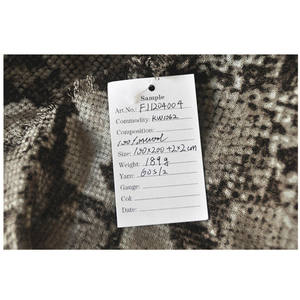 Sample
Art.No.: F11204004
Commodity: KW1062
Composition:
100% wool
Size: 130X200+2X2cm
Weight: 189g
Yarn: 60S/2
Gauge:
Col:
Date: